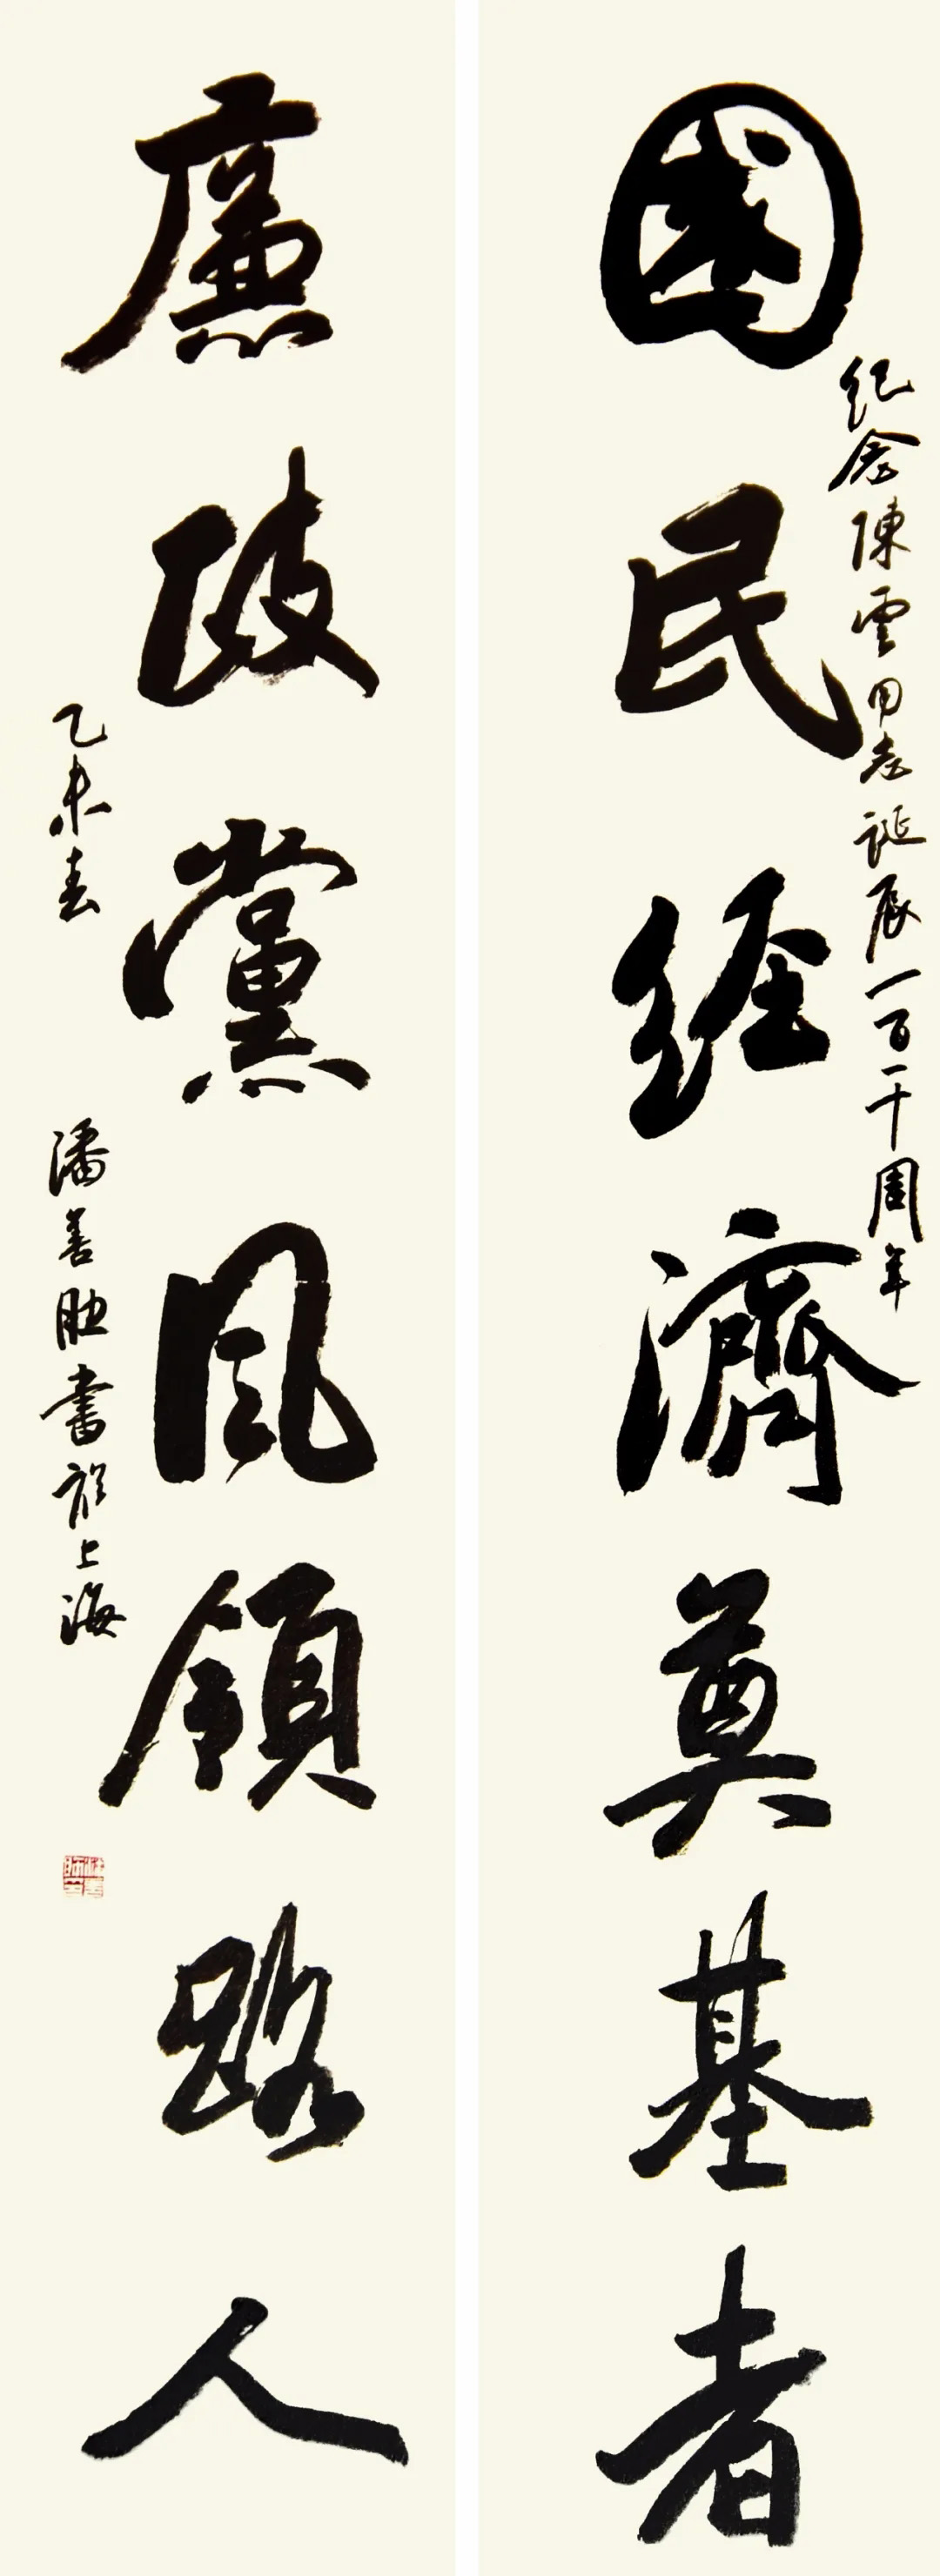 國民经濟奠基者
纪念陳雲同志誕辰一百一十周年
廉政黨風領路人
乙未春
潘善助書於上海